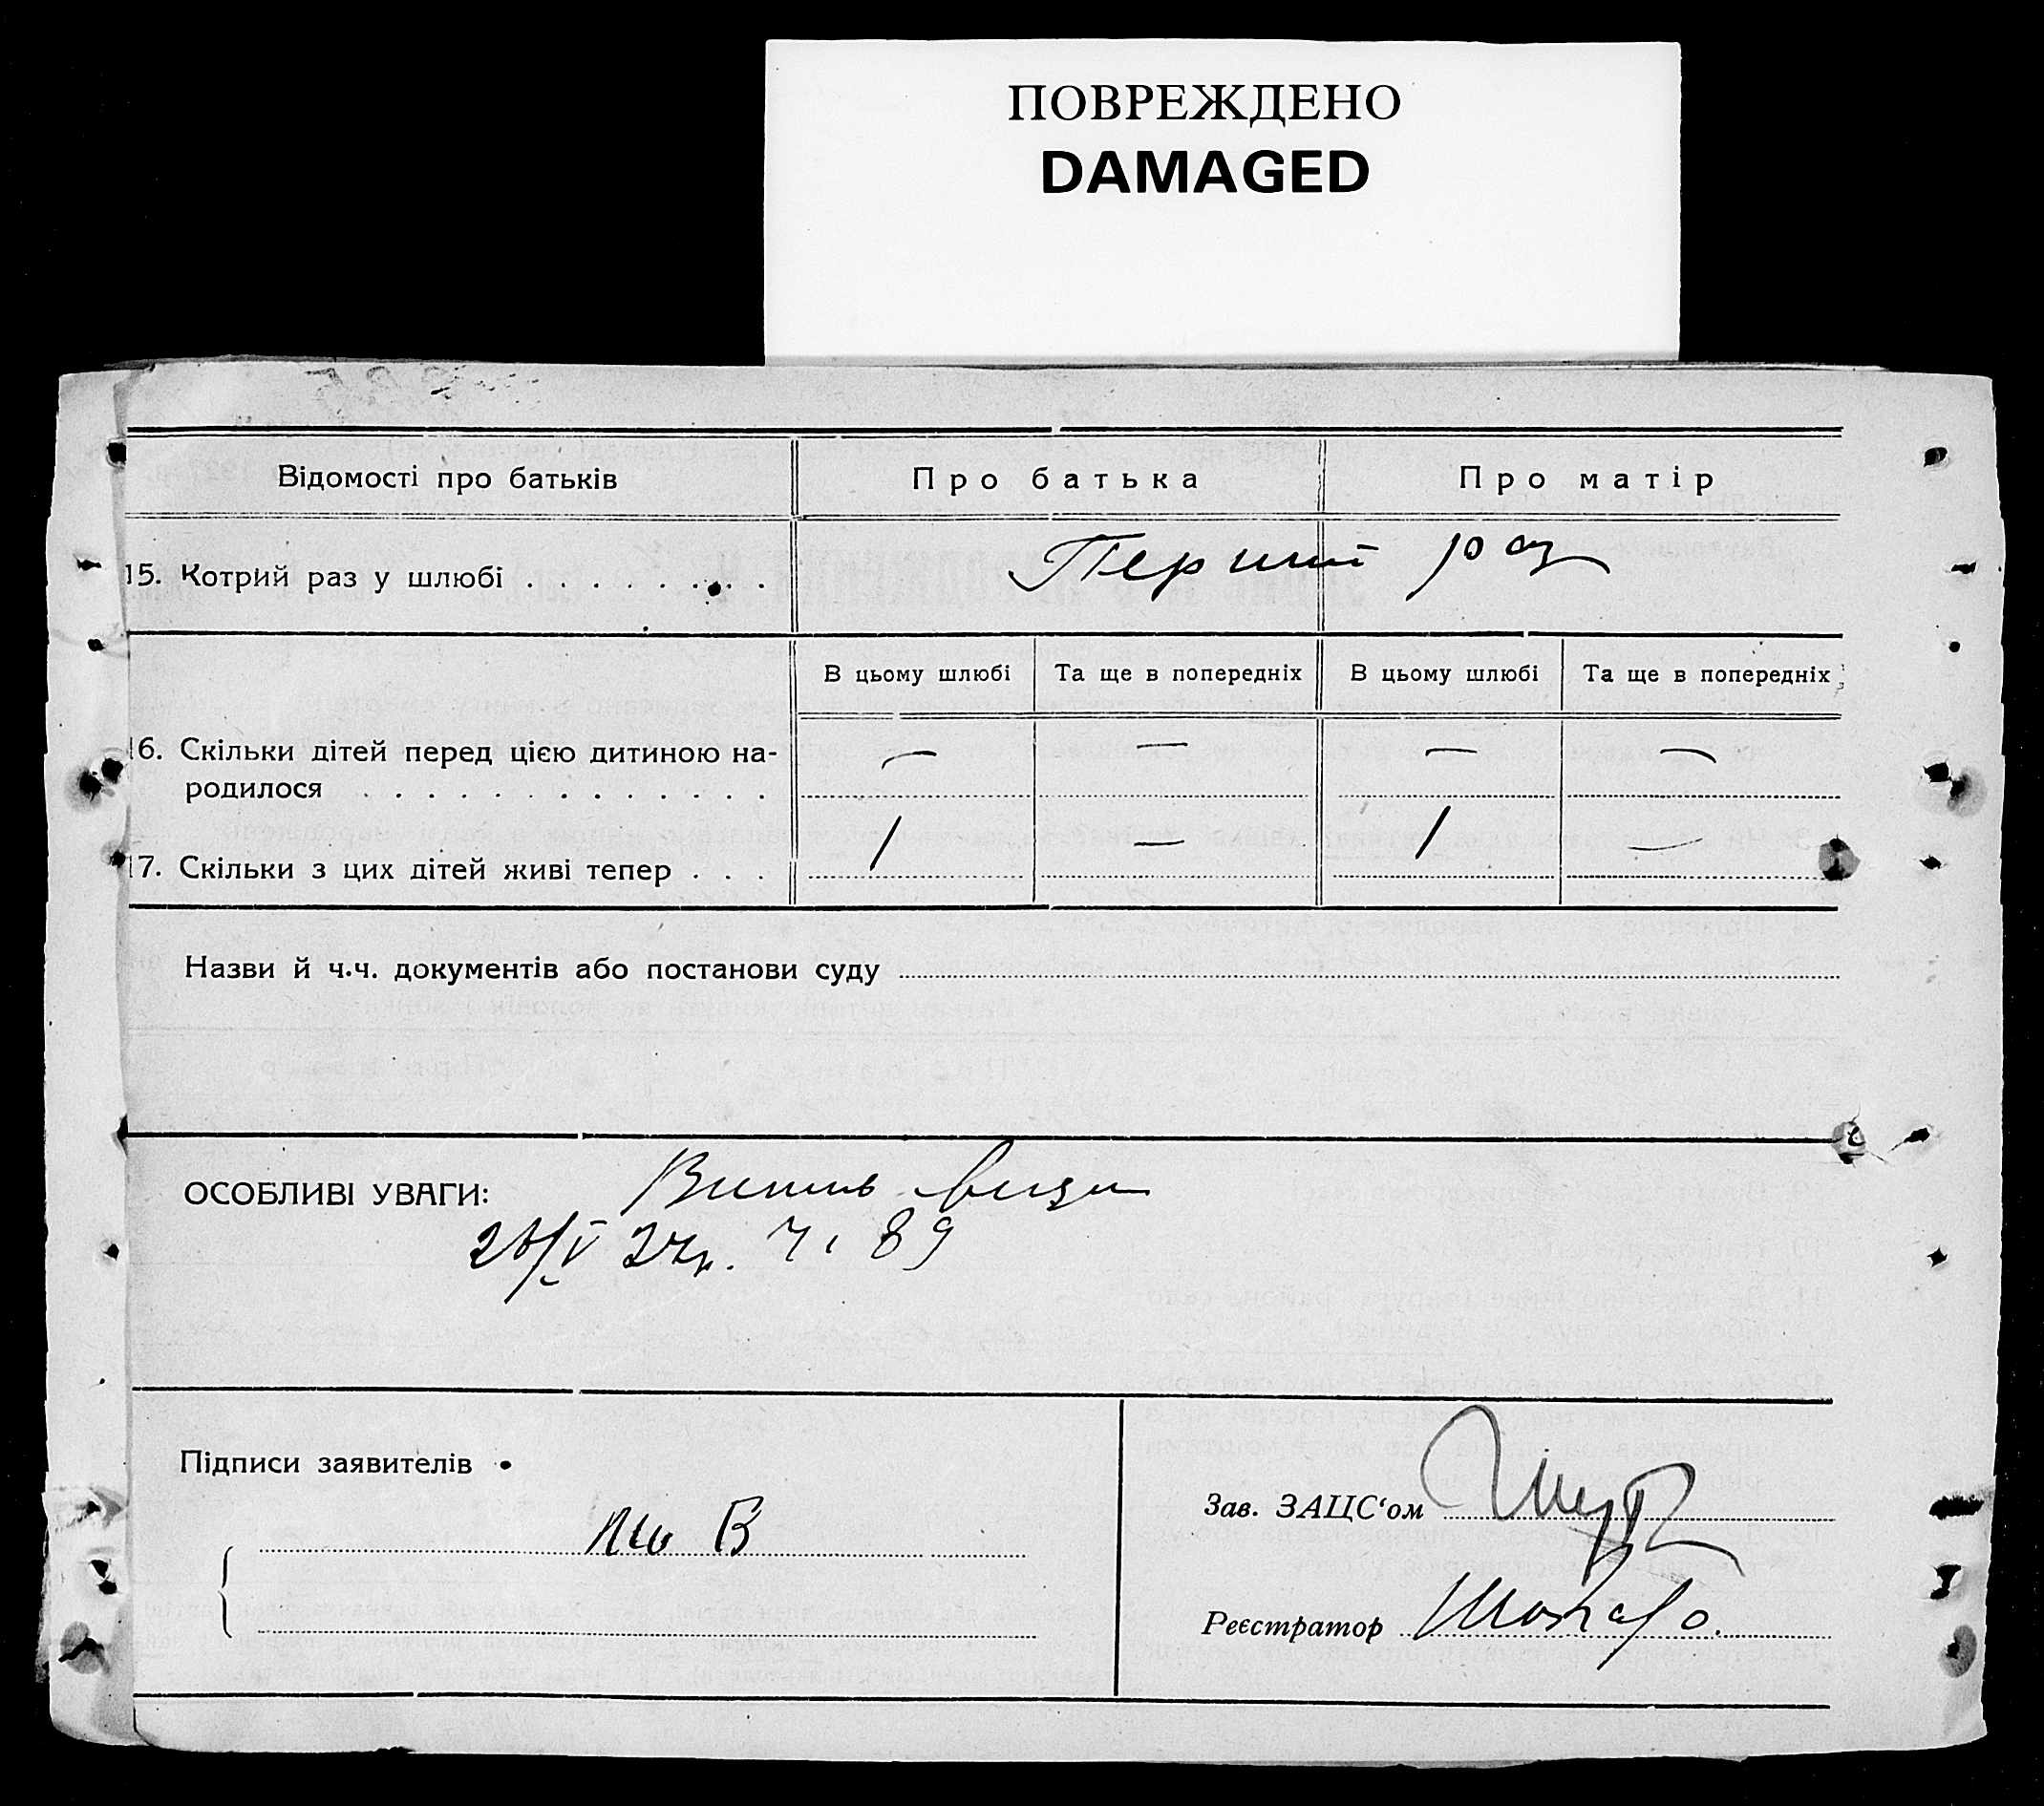 ПОВРЕЖДЕНО
DAMAGED
Відомості про батьків
Про батька
Про матір
15. Котрий раз у шлюбі . . . . . . . .
Перший раз
В цьому шлюбі
Та ще в попередніх
В цьому шлюбі
Та ще в попередніх
16. Скільки дітей перед цією дитиною на-
— — — —
родилося . . . . . . . . . . . . .
17. Скільки з цих дітей живі тепер . . .
1 — 1 —
Назви й ч.ч. документів або постанови суду
ОСОБЛИВІ УВАГИ:
27р. Ч. 89
Підписи заявителів
Зав. ЗАЦС‘ом
Реєстратор